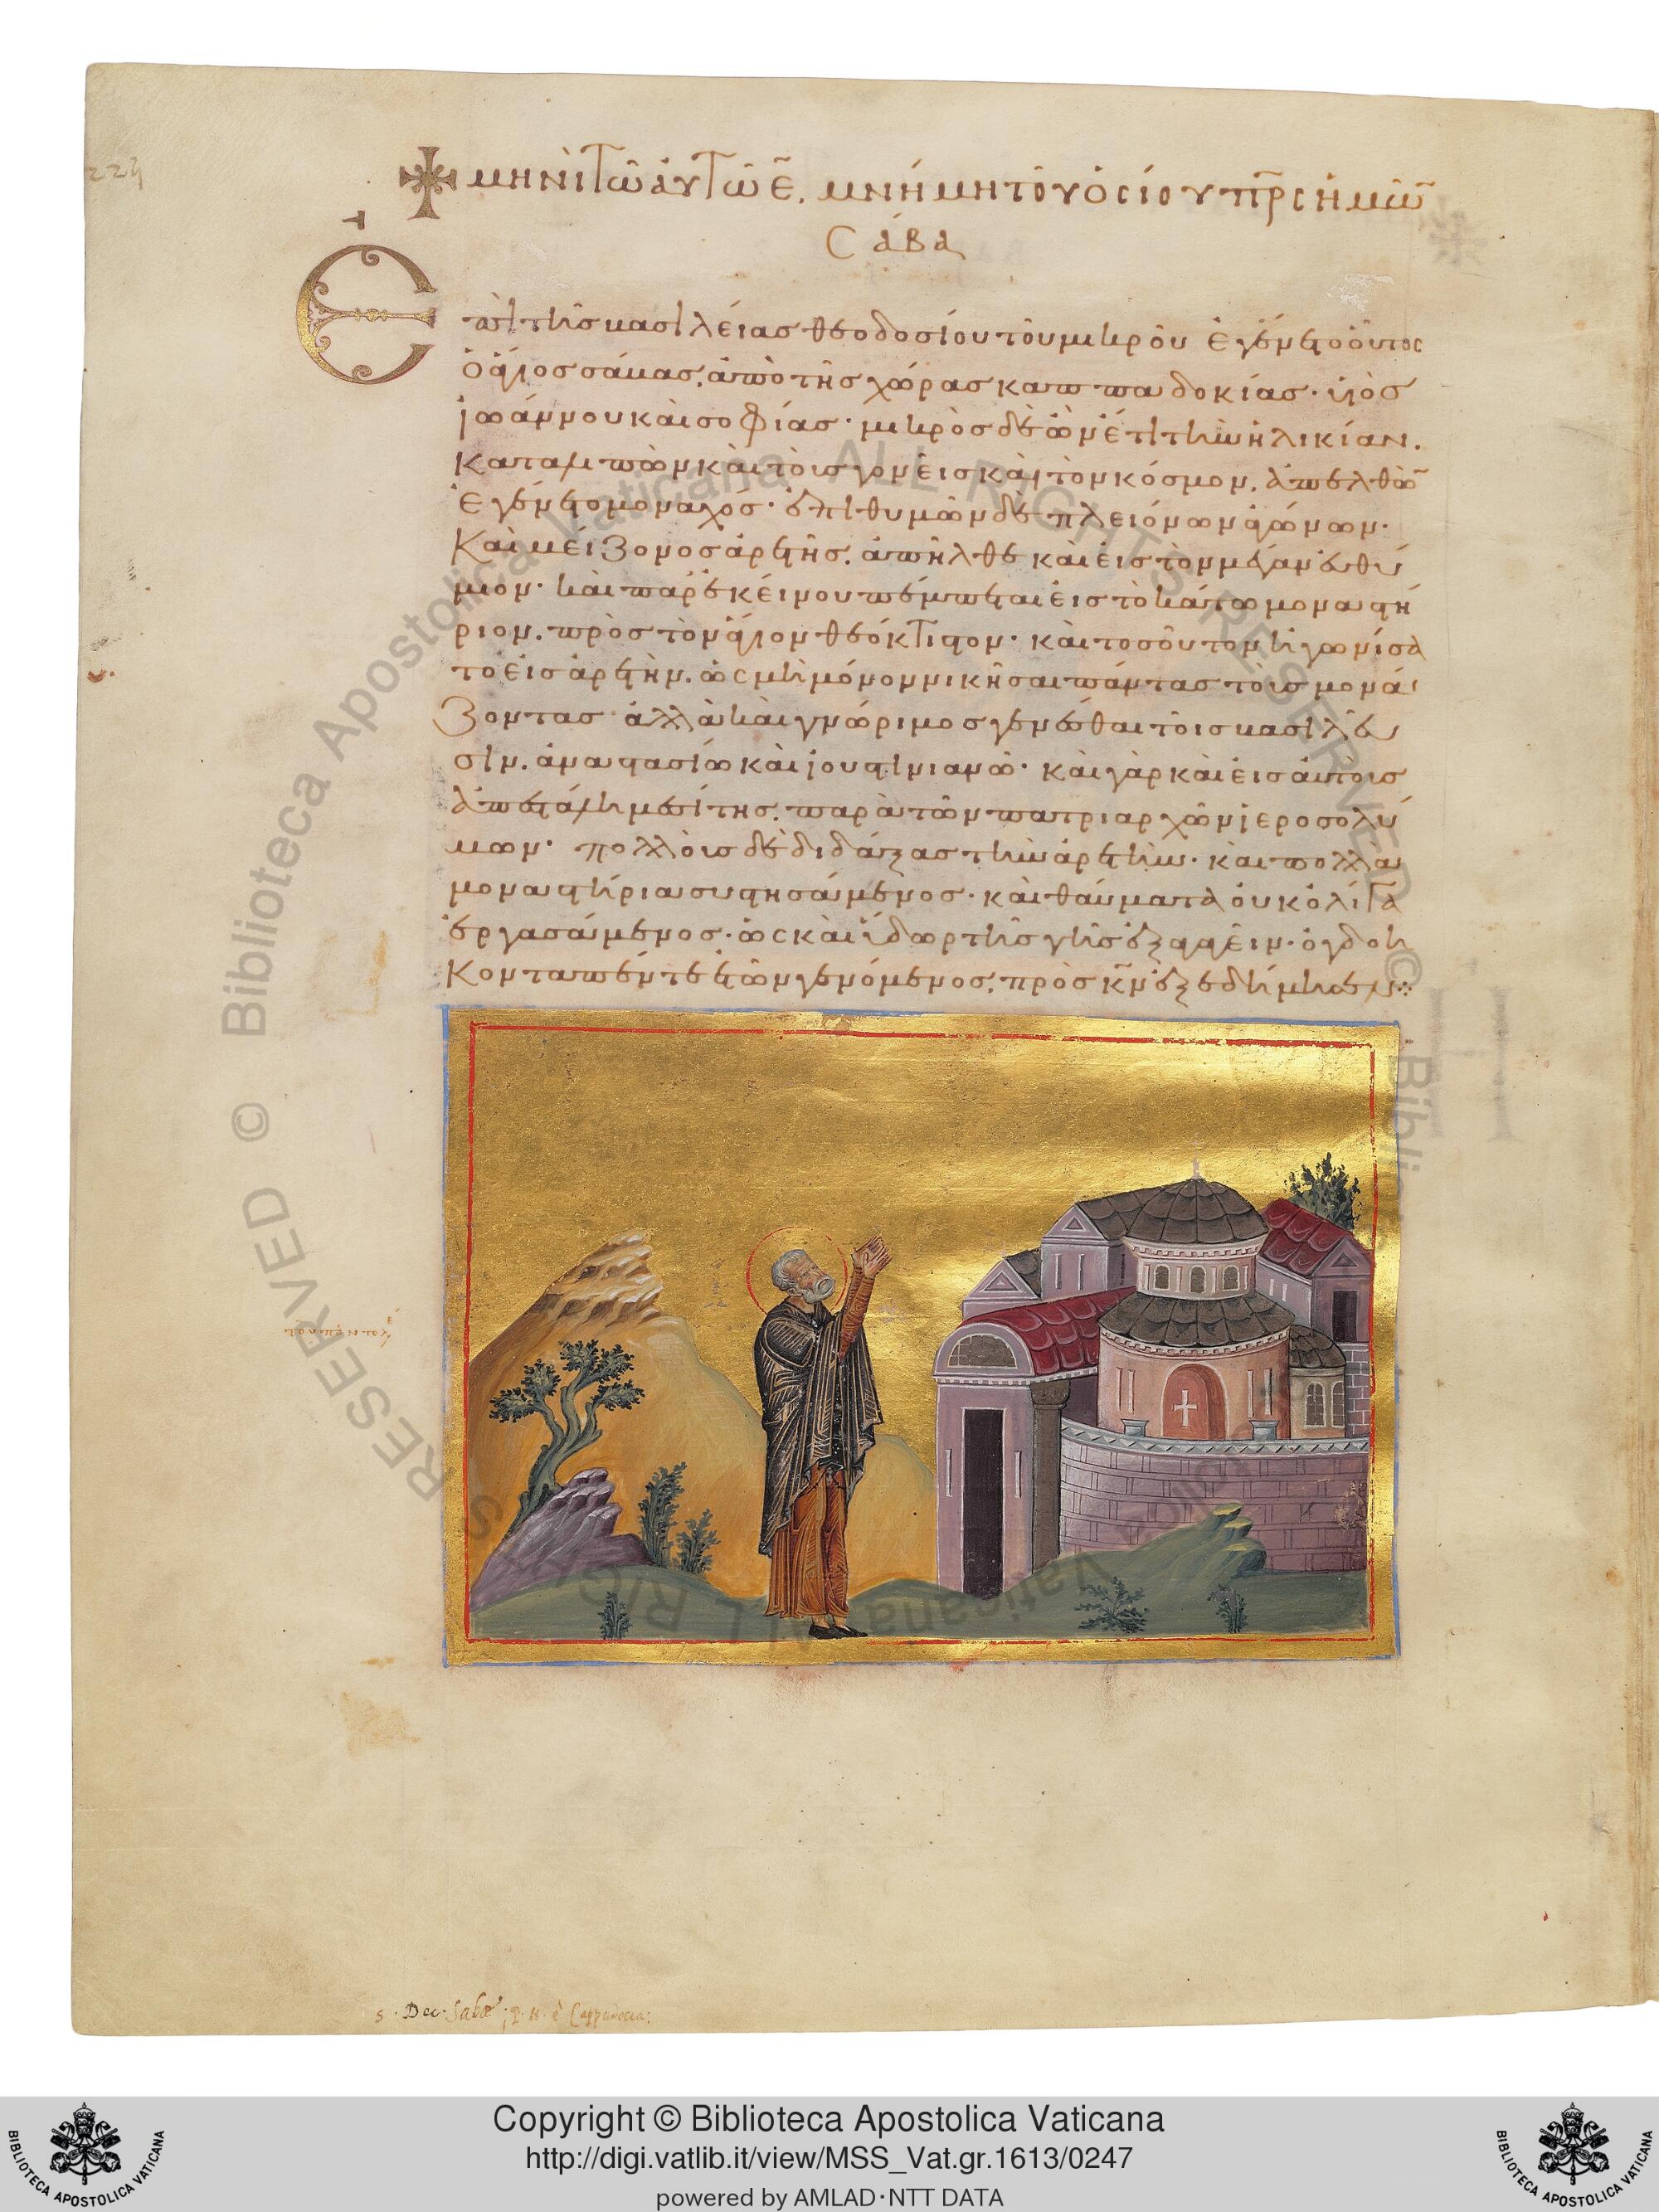 225
μηνὶ τῶ αὐτῶ ε̄. μνήμη τοῦ ὁσίου π̅ρ̅ς ἡμῶ̅
Σάβα
Ἐπὶ τῆς βασιλείας θεοδοσίου τοῦ μικροῦ ἐγένετο οὗτος
ὁ ἅγιος σάβας. ἀπὸ τῆς χώρας καππαδοκίας· υἱὸς
ἰωάννου καὶ σοφίας· μικρὸς δὲ ὢν ἔτι τὴν ἡλικίαν.
καταλιπὼν καὶ τοὺς γονεῖς καὶ τὸν κόσμον. ἀπελθὼ̅
ἐγένετο μοναχός· ἐπιθυμῶν δὲ πλειόνων ἀγώνων·
καὶ μείζονος ἀρετῆς. ἀπῆλθε καὶ εἰς τὸν μέγαν εὐθύ
μιον· καὶ παρ' ἐκείνου πέμπεται εἰς τὸ κάτω μοναστή
ριον. πρὸς τὸν ἅγιον θεόκτιστον· καὶ τοσοῦτον ἠγωνίσα
το εἰς ἀρετὴν. ὡς μὴ μόνον νικῆσαι πάντας τοὺς μονά
ζοντας ἀλλὰ καὶ γνώριμος γενέσθαι τοῖς βασιλεῦ
σιν. ἀναστασίω καὶ ἰουστινιανῶ· καὶ γὰρ καὶ εἰς αὐτοὺς
ἀπεστάλη μεσίτης. παρὰ τῶν πατριαρχῶν ἱεροσολύ
μων· πολλοὺς δὲ διδάξας τὴν ἀρετὴν· καὶ πολλὰ
μοναστήρια συστησάμενος· καὶ θαύματα οὐκ ὀλίγα
ἐργασάμενος· ὡς καὶ ὕδωρ τῆς γῆς ἐξ
κοντα πέντε ἐτῶν γενόμενος. πρὸς κ̅ν̅ ἐξεδήμησεν
5 · Dec · Sabæ; P. N. è Cappadocia:
© Biblioteca Apostolica Vaticana ALL RIGHTS RESERVED © Biblioteca Apostolica Vaticana ALL RIGHTS RESERVED
Copyright © Biblioteca Apostolica Vaticana
http://digi.vatlib.it/view/MSS_Vat.gr.1613/0247
powered by AMLAD·NTT DATA
BIBLIOTECA APOSTOLICA VATICANA
BIBLIOTECA APOSTOLICA VATICANA